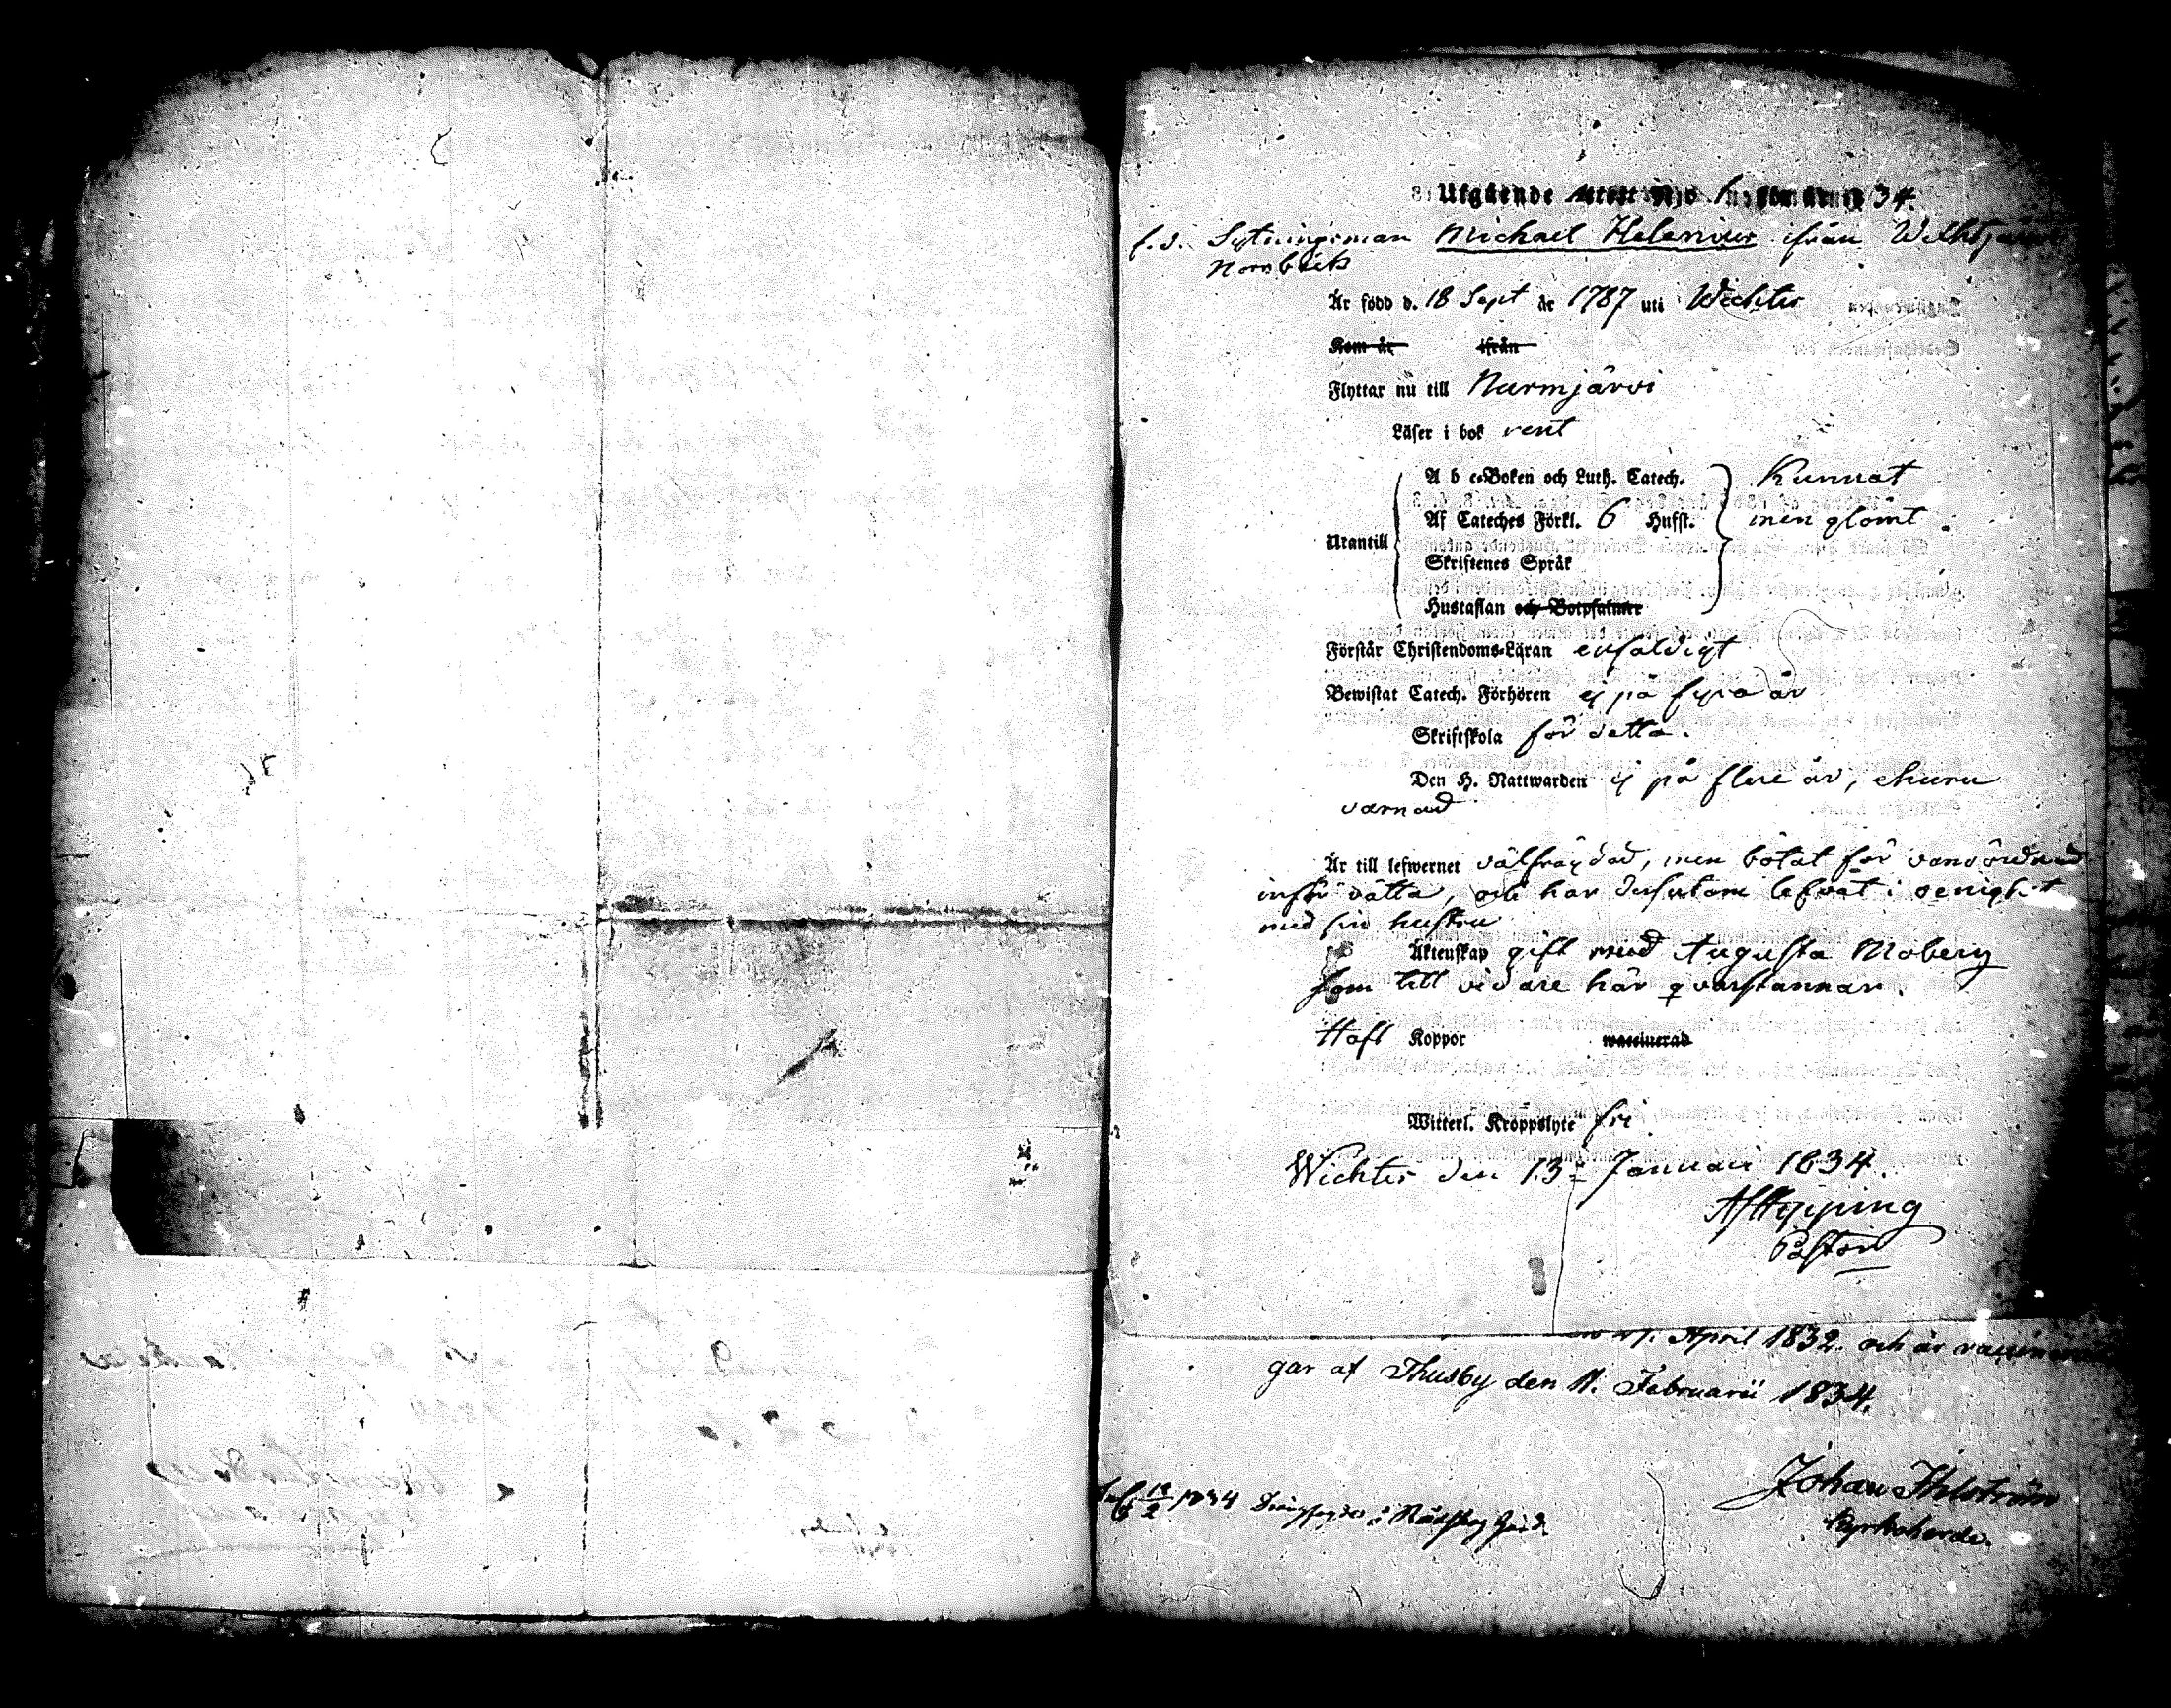 Utgående attest N:o 1 för året 1834.
f. d. Sytningsman Michael Helenius ifrån
Är född d. 18 Sept år 1787 uti Wichtis
Kom år ifrån
Flyttar nu till Nurmjärvi
Läser i bok rent
A b c-Boken och Luth. Catech. Kunnat
Af Cateches Förkl. 6 Hufst. men glömt.
Utantill
Skriftenes Språk
Hustaflan och Botpsalmer
Förstår Christendoms-Läran enfaldigt
Bewistat Catech. Förhören ej på fyra år
Skriftskola för detta.
Den H. Nattwarden ej på flere år, ehuru
varnad
Är till lefwernet välfräjdad, men bötat för vanvördnad
inför rätta, och har dessutom lefvat i oenighet
med sin hustru
Äktenskap gift med Augusta Moberg
som till vidare här qvarstannar.
Haft Koppor waccinerad
Witterl. Kroppslyte fri
Wichtis den 13 Januari 1834.
Pastor
April 1832. och är
gar af Thusby den 11. Februarii 1834.
Johan Ihlström
Kyrkoherde.
13/2 1834